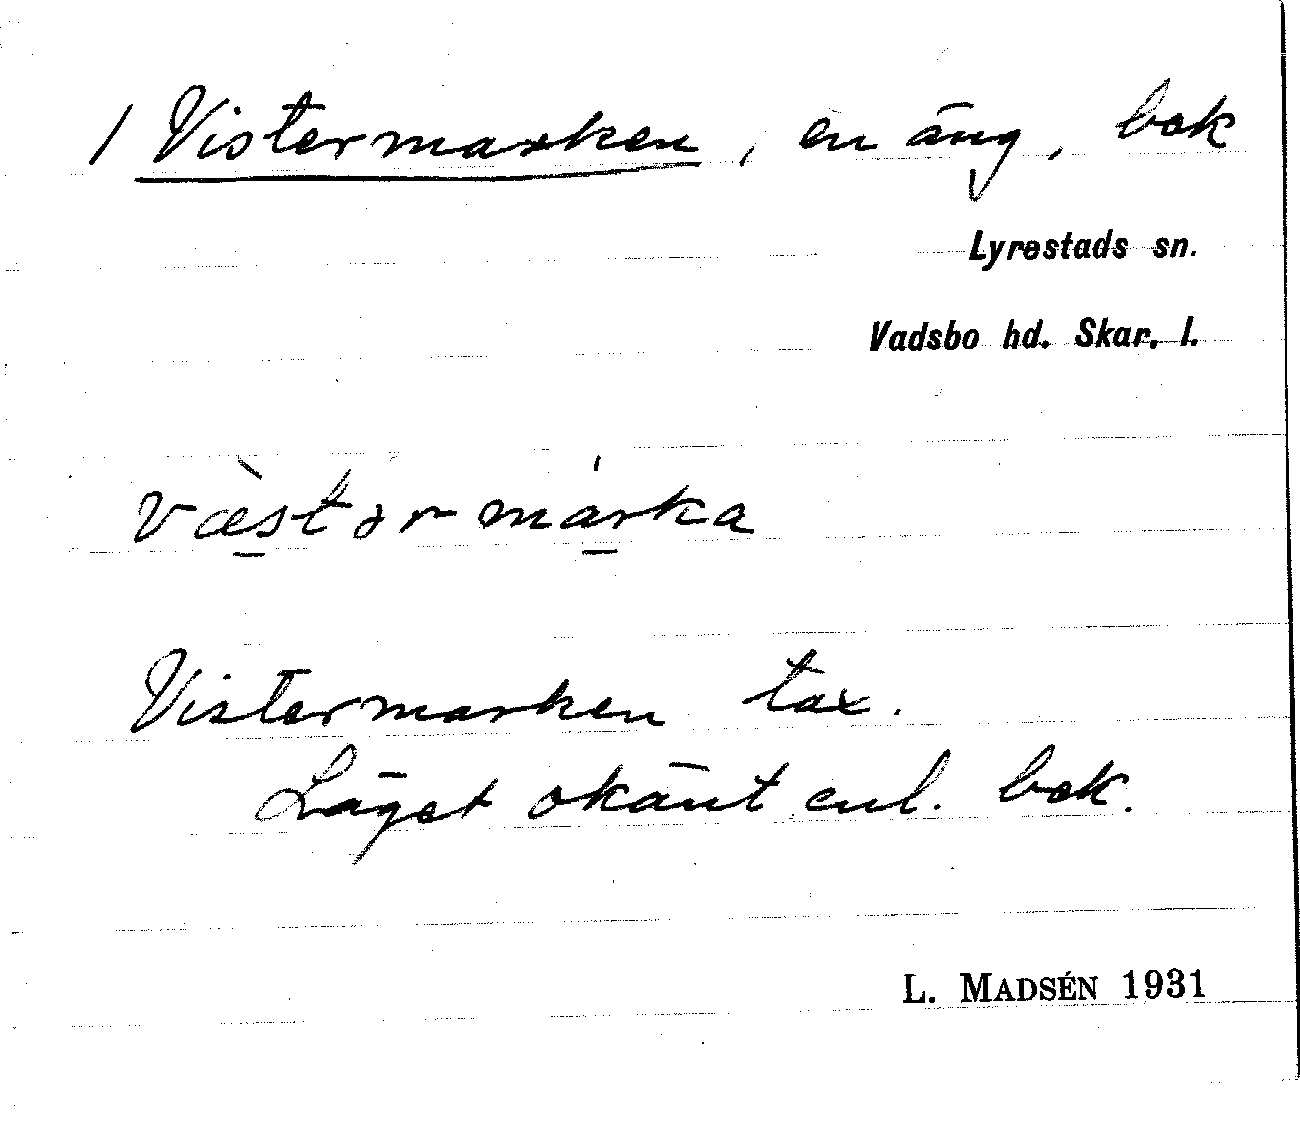 / Vistermarken, en äng, bok
Lyrestads sn.
Vadsbo hd. Skar. l.
væ̀stər márka
Vistermarken tax.
Läget okänt enl. bok.
L. MADSÉN 1931